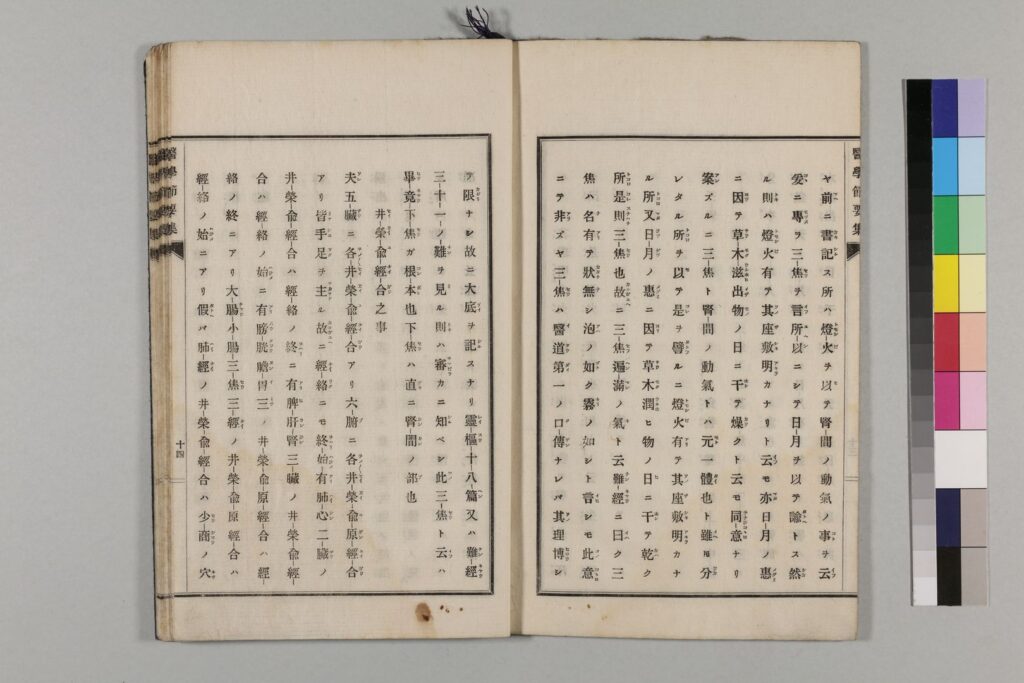 醫學節要集
ヤ前ニ書記ス所ハ燈火ヲ以テ腎間ノ動氣ノ事ヲ云
爰ニ專ラ三焦ヲ言所以ニシテ日月ヲ以テ諭トス然
ル則ハ燈火有テ其座敷明カナリト云モ亦日月ノ惠
ニ因テ草木滋出物ノ日ニ干テ燥クト云モ同意ナリ
案ズルニ三焦ト腎間ノ動氣トハ元一體也ト雖モ分
レタル所ヲ以テ是ヲ譬ルニ燈火有テ其座敷明カナ
ル所又日月ノ惠ニ因テ草木潤ヒ物ノ日ニ干テ乾ク
所是則三焦也故ニ三焦遍滿ノ氣ト云難經ニ曰ク三
焦ハ名有テ狀無シ泡ノ如ク霧ノ如シト言シモ此意
ニテ非ズヤ三焦ハ醫道第一ノ口傳ナレバ其理博シ
ヲ限ナシ故ニ大底ヲ記スナリ靈樞十八篇又ハ難經
三十一ノ難ヲ見ル則ハ審カニ知ベシ此三焦ト云ハ
畢竟下焦ガ根本也下焦ハ直ニ腎間ノ部也
井榮兪經合之事
夫五臟ニ各井榮兪經合アリ六腑ニ各井榮兪原經合
アリ皆手足ヲ主ル故ニ經絡ニモ終始有肺心二臟ノ
井榮兪經合ハ經絡ノ終ニ有脾肝腎三臟ノ井榮兪經
合ハ經絡ノ始ニ有膀胱膽胃三ノ井榮兪原經合ハ經
絡ノ終ニアリ大腸小腸三焦三經ノ井榮兪原經合ハ
經絡ノ始ニアリ假バ肺經ノ井榮兪經合ハ少商ノ穴
十四
醫學節要集